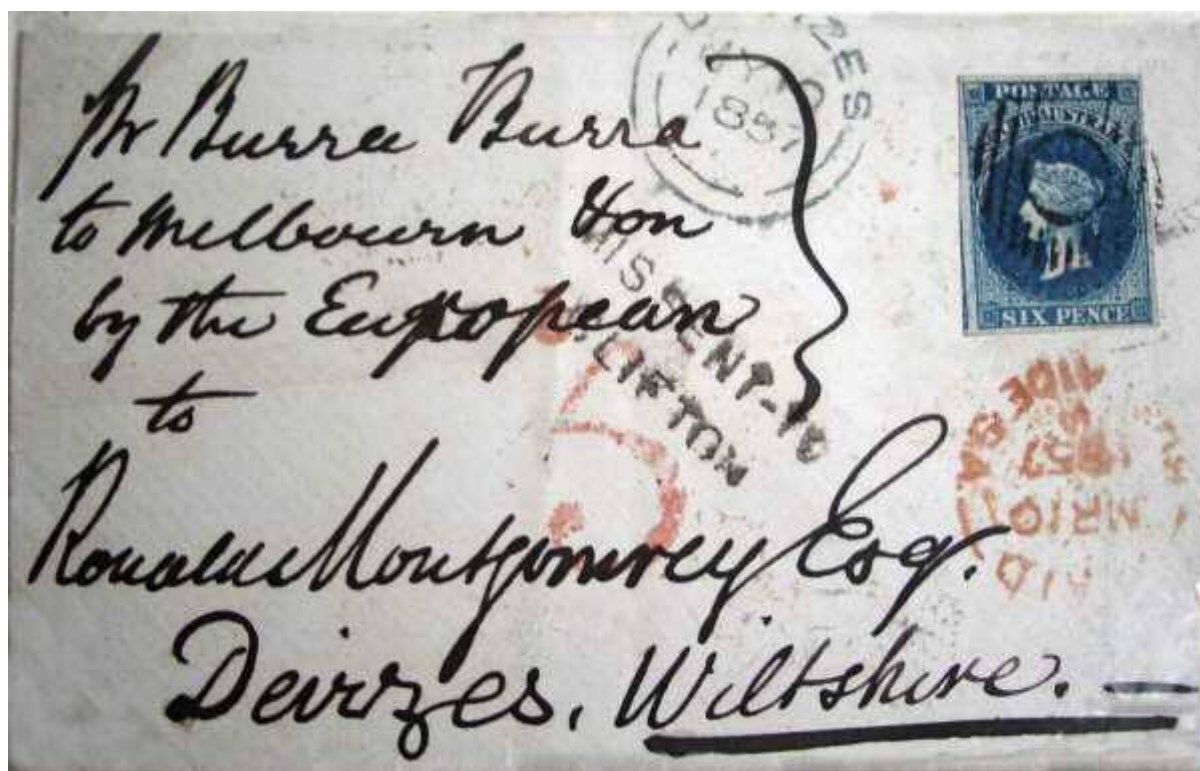 pr Burra Burra
to Melbourn Hon
by the European
to
Ronald Montgomrey Esq.
Deivzes. Wiltshire.
ZES
1857
MISSENT-TO
CLIFTON
6
POSTAGE
SOUTH AUSTRALIA
SIX PENCE
MR 10
1857